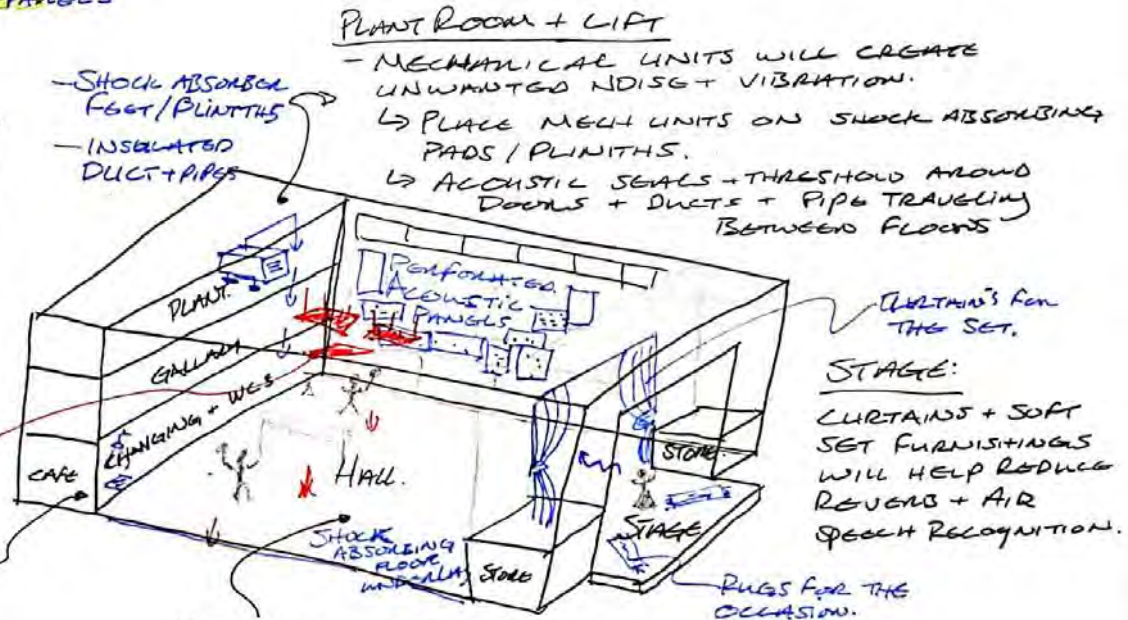 PANELS
PLANT ROOM + LIFT
- MECHANICAL UNITS WILL CREATE
UNWANTED NOISE + VIBRATION.
↳ PLACE MECH UNITS ON SHOCK ABSORBING
PADS / PLINITHS.
↳ ACOUSTIC SEALS + THRESHOLD AROUND
DOORS + DUCTS + PIPE TRAVELING
BETWEEN FLOORS
- SHOCK ABSORBER
FEET / PLINTHS
- INSULATED
DUCT + PIPES
PLANT.
GALLARY
CHANGING + WC'S
CAFE
PERFORATED
ACOUSTIC
PANELS
HALL.
SHOCK
ABSORBING
FLOOR
UNDERLAY
STORE
STORE.
STAGE
CURTAIN'S FOR
THE SET.
STAGE:
CURTAINS + SOFT
SET FURNISHINGS
WILL HELP REDUCE
REVERB + AIR
SPEECH RECOGNITION.
RUGS FOR THE
OCCASION.